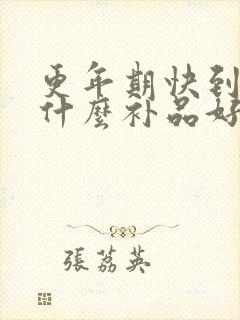 更年期快到
什麼补品好
張荔英